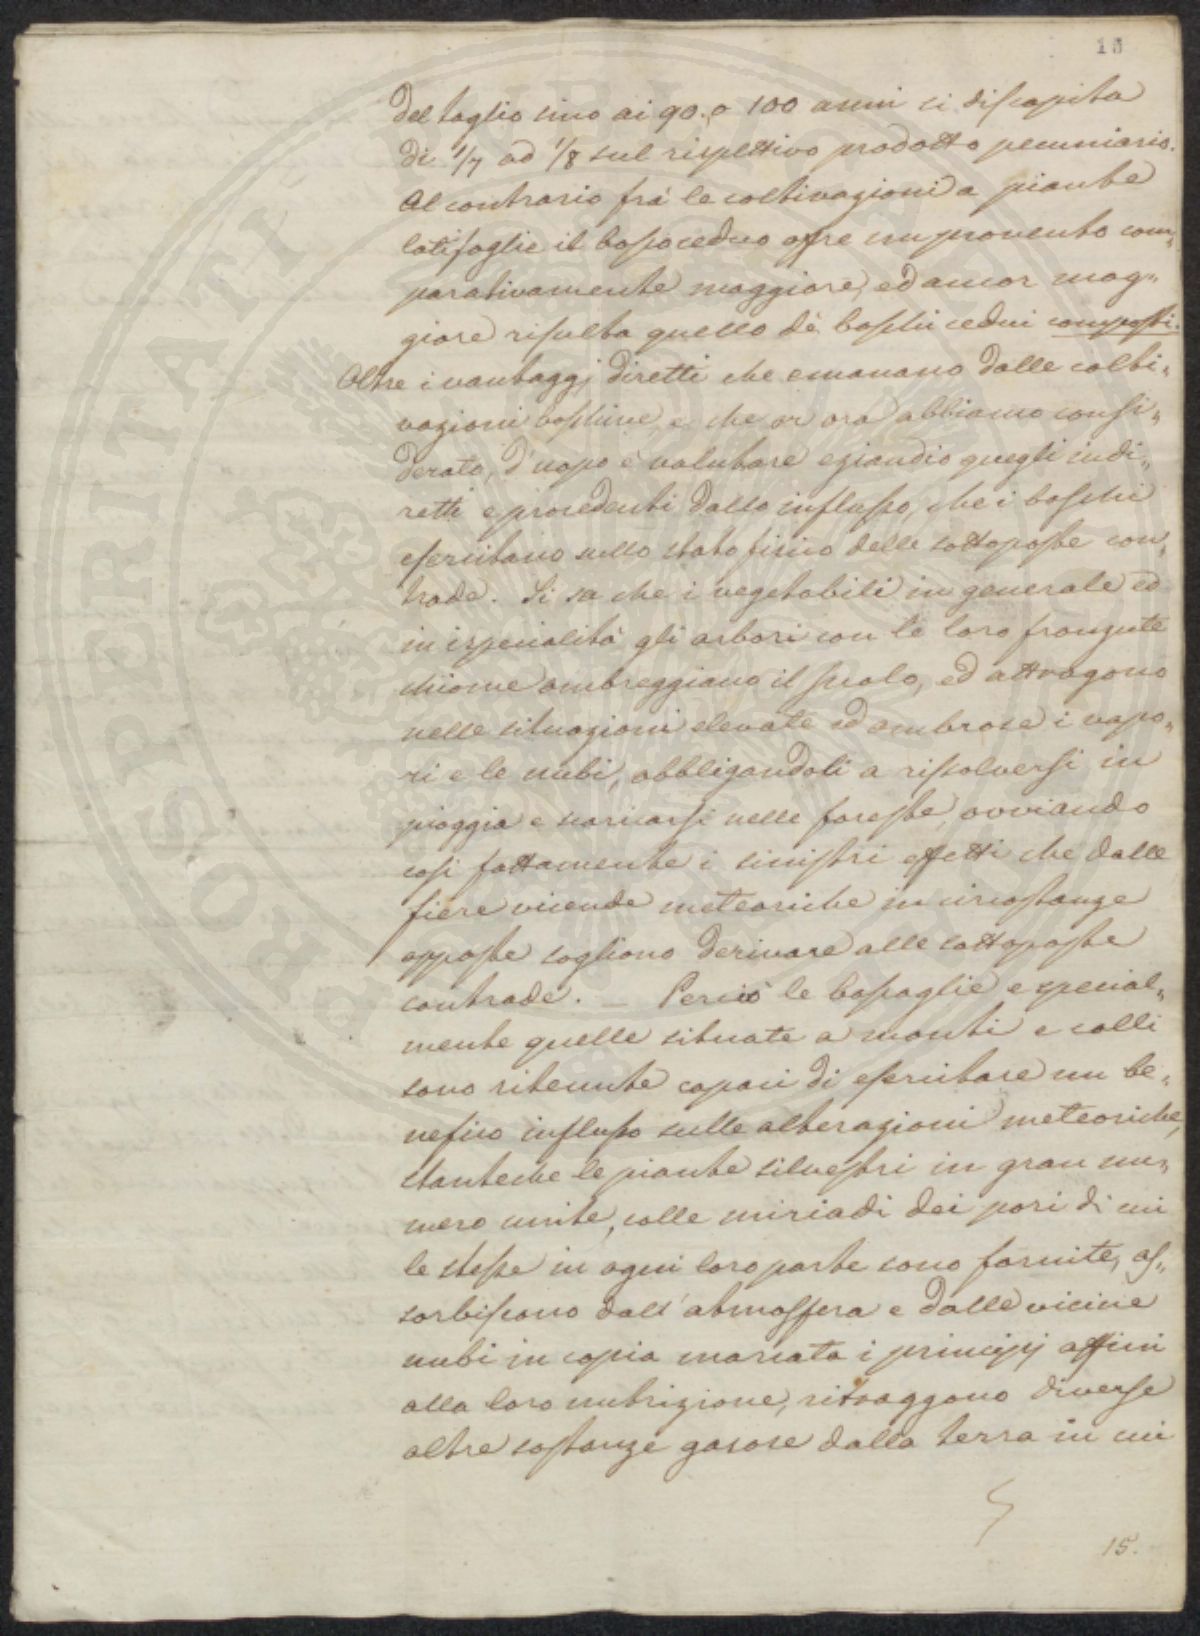 15
del taglio sino ai 90. o 100 anni si discapita
di 1/7 ad 1/8 sul rispettivo prodotto pecuniario.
Al contrario frà le coltivazioni a piante
latifoglie il bosco ceduo offre un provento com„
parativamente maggiore, ed ancor mag„
giore risulta quello dè boschi cedui composti.
Oltre i vantaggj diretti che emanano dalle colti„
vazioni boschive, e che or ora abbiamo consi„
derato, d'uopo è valutare eziandio quegli indi„
retti e procedenti dallo influsso, che i boschi
esercitano sullo stato fisico delle sottoposte con„
trade. Si sa che i vegetabili in generale ed
in ispecialità gli arbori con le loro fronzute
chiome ombreggiano il suolo, ed attragono
nelle situazioni elevate ed ombrose i vapo„
ri e le nubi, obbligandoli a rissolversi in
pioggia e scaricarsi nelle foreste, ovviando
così fattamente i sinistri effetti che dalle
fiere vicende meteoriche in circostanze
opposte sogliono derivare alle sottoposte
contrade. _ Perciò le boscaglie e special„
mente quelle situate a monti e colli
sono ritenute capaci di esercitare un be„
nefico influsso sulle alterazioni meteoriche,
stanteche le piante silvestri in gran nu„
mero unite, colle miriadi dei pori di cui
le stesse in ogni loro parte sono fornite, as„
sorbiscono dall'atmosfera e dalle vicine
nubi in copia marcata i principj affini
alla loro nutrizione, ritraggono diverse
altre sostanze gasose dalla terra in cui
15.
PROSPERITATI PUBLICAE